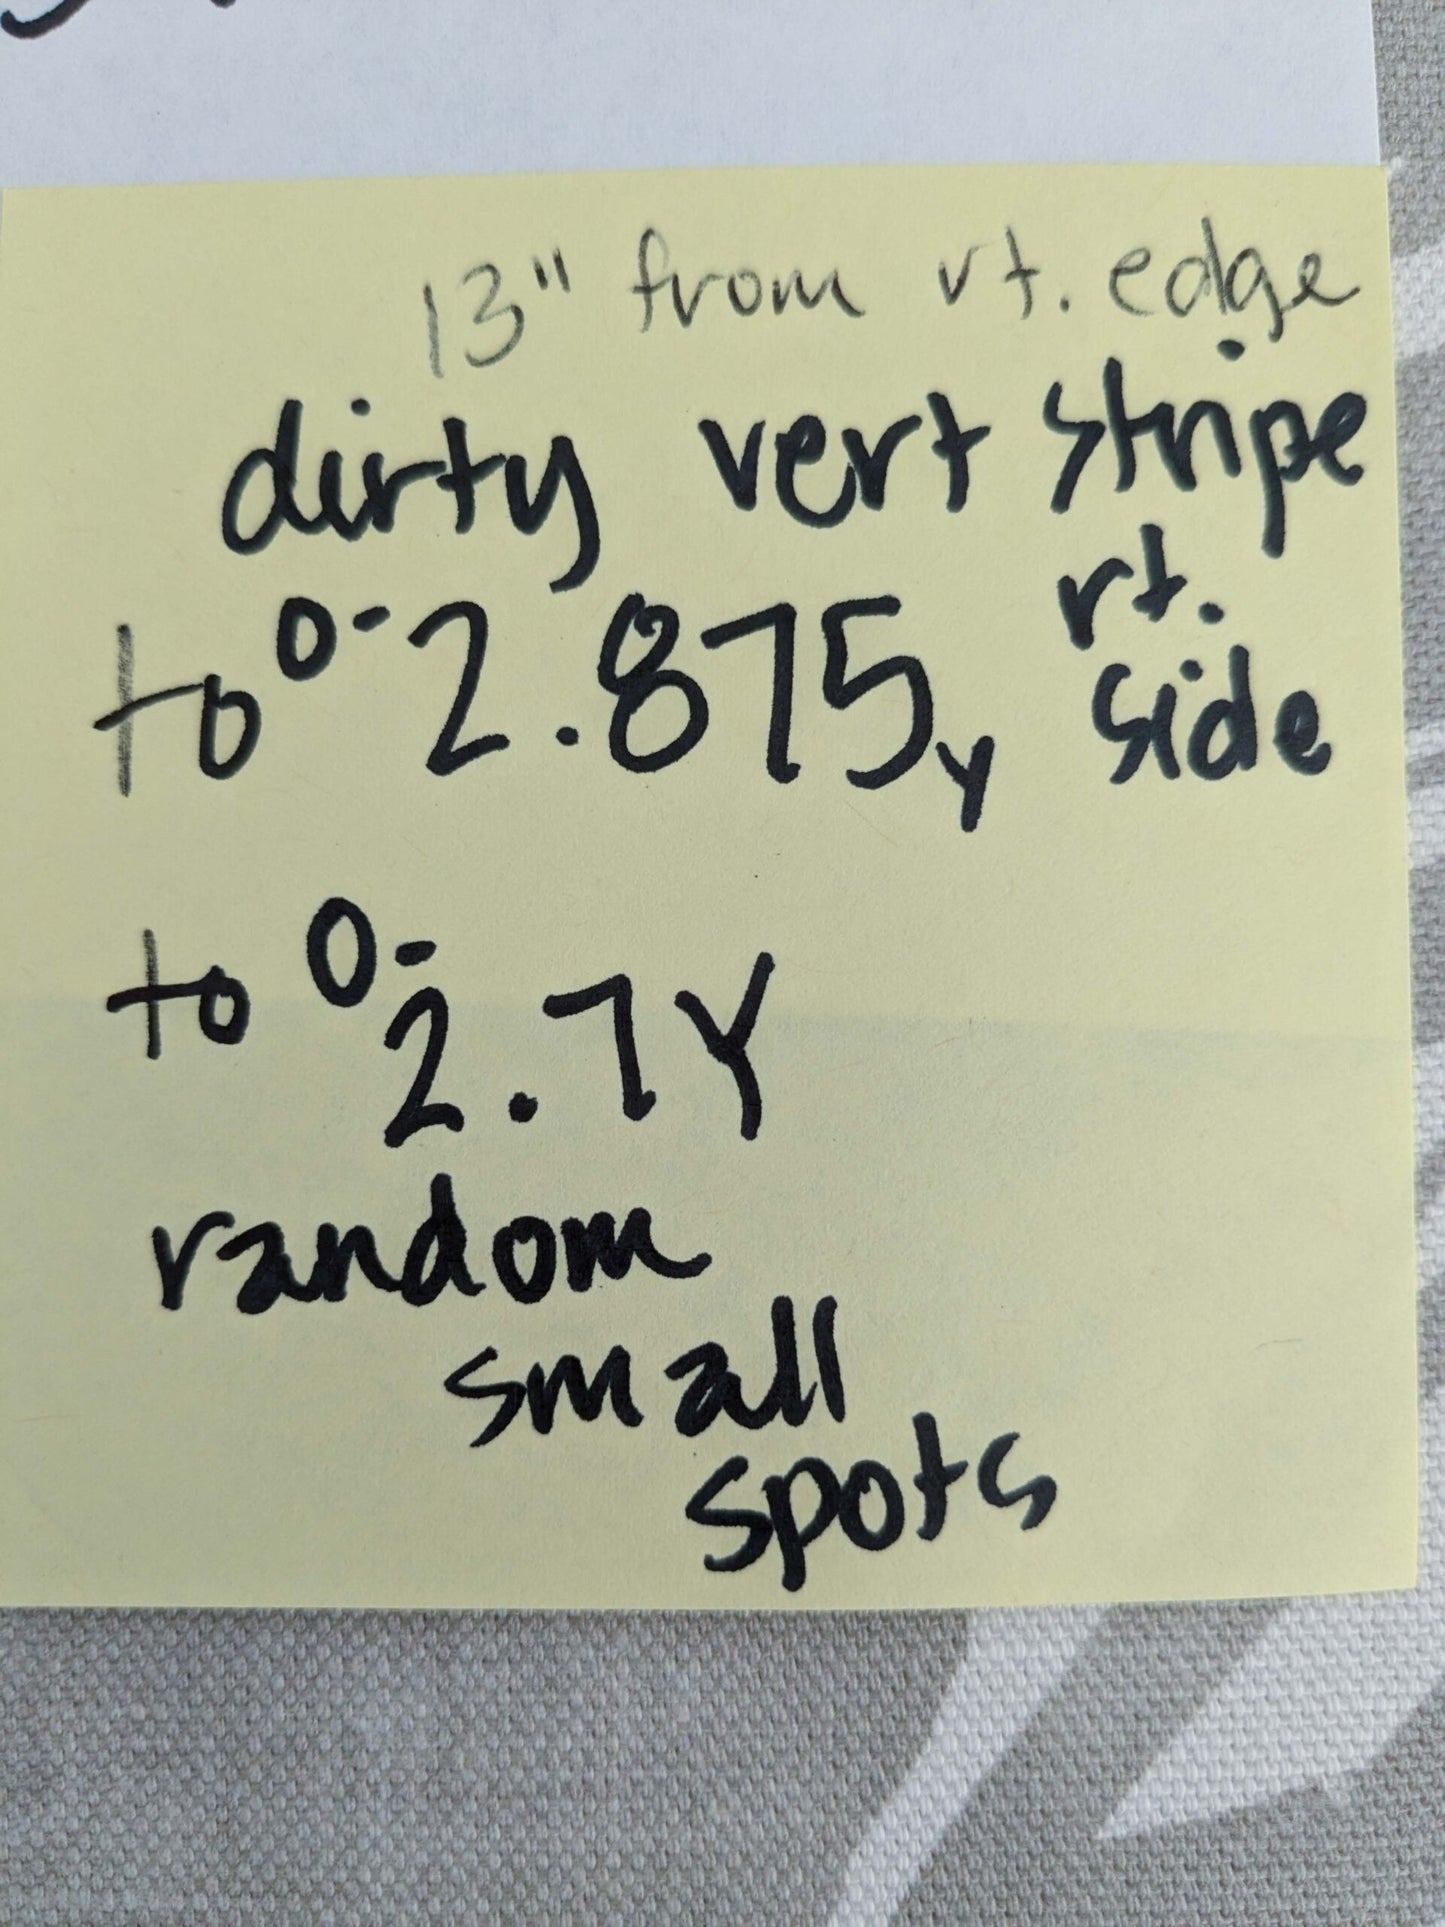 13" from rt. edge
dirty vert stripe
rt.
side
to 0-2.875y
to 0-2.7Y
random
small
spots